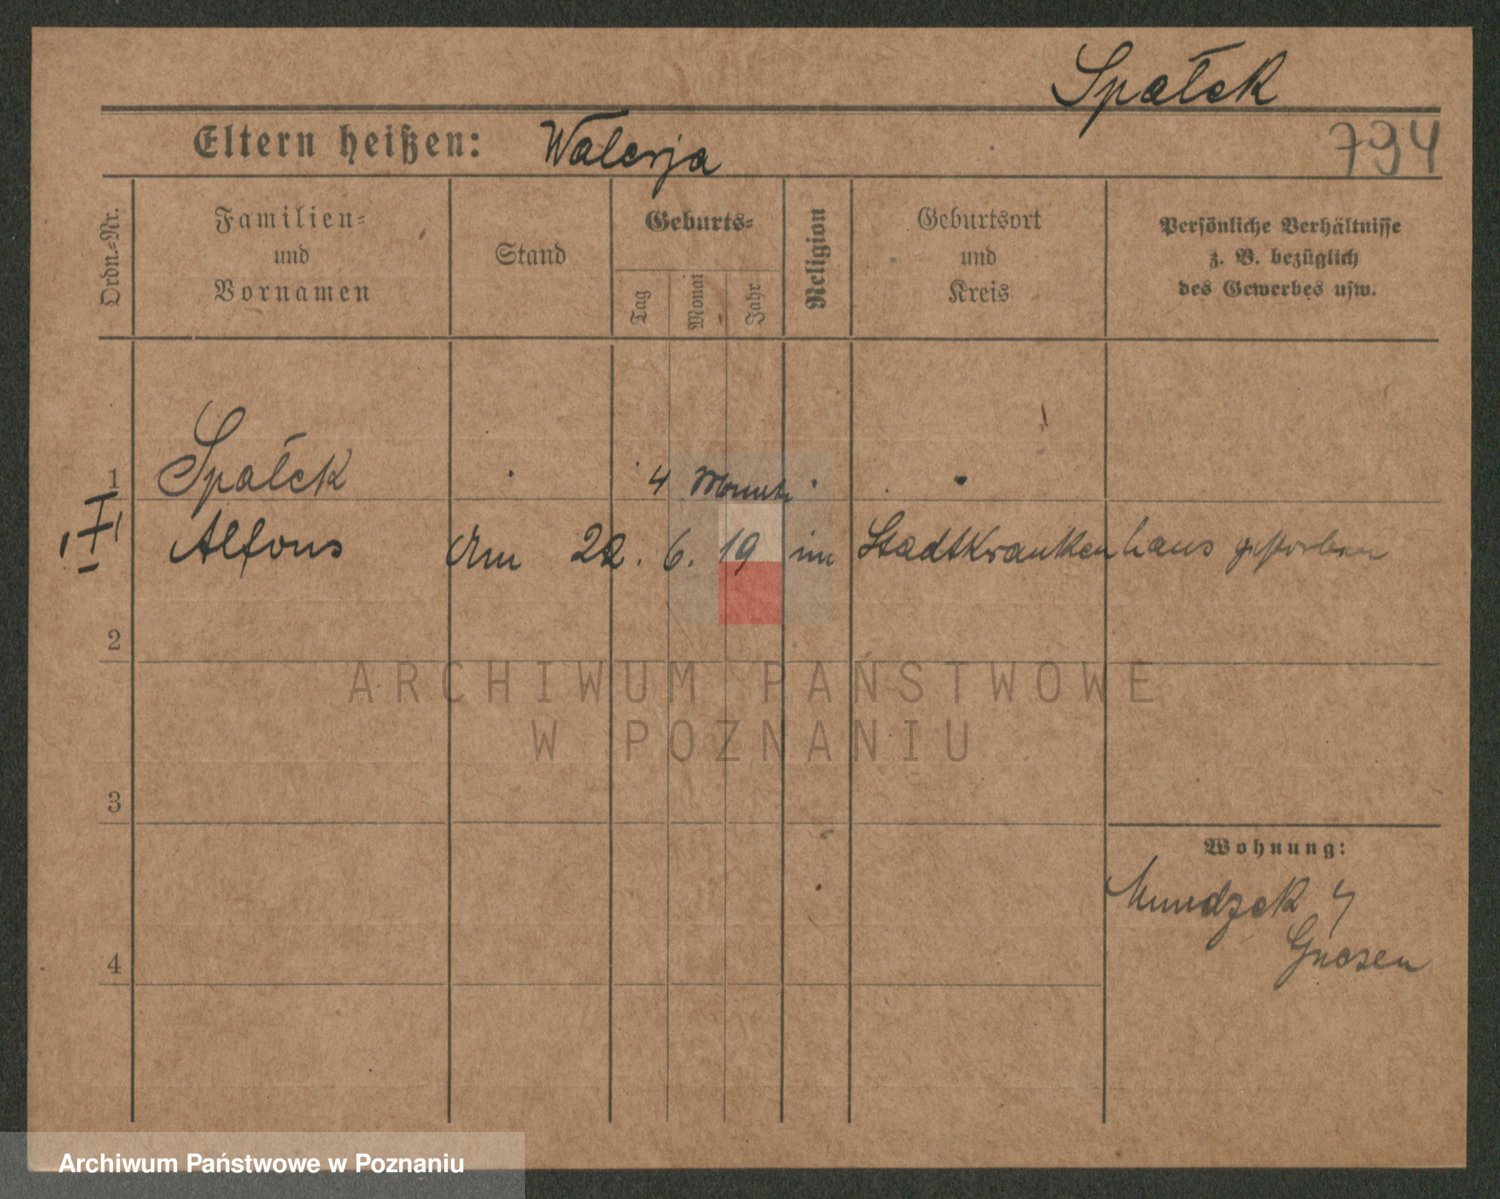 Spałek
794
Eltern heißen: Walerja
Ordn.-Nr.
Familien-
und
Vornamen
Stand
Geburts-
Tag
Monat
Jahr
Religion
Geburtsort
und
Kreis
Persönliche Verhältnisse
z. B. bezüglich
des Gewerbes usw.
1 Spałek 4 Monate
Alfons Am 22. 6. 19 im Stadtkrankenhaus gestorben
2
ARCHIWUM PAŃSTWOWE
W POZNANIU
3
Wohnung:
Gnesen
4
Archiwum Państwowe w Poznaniu